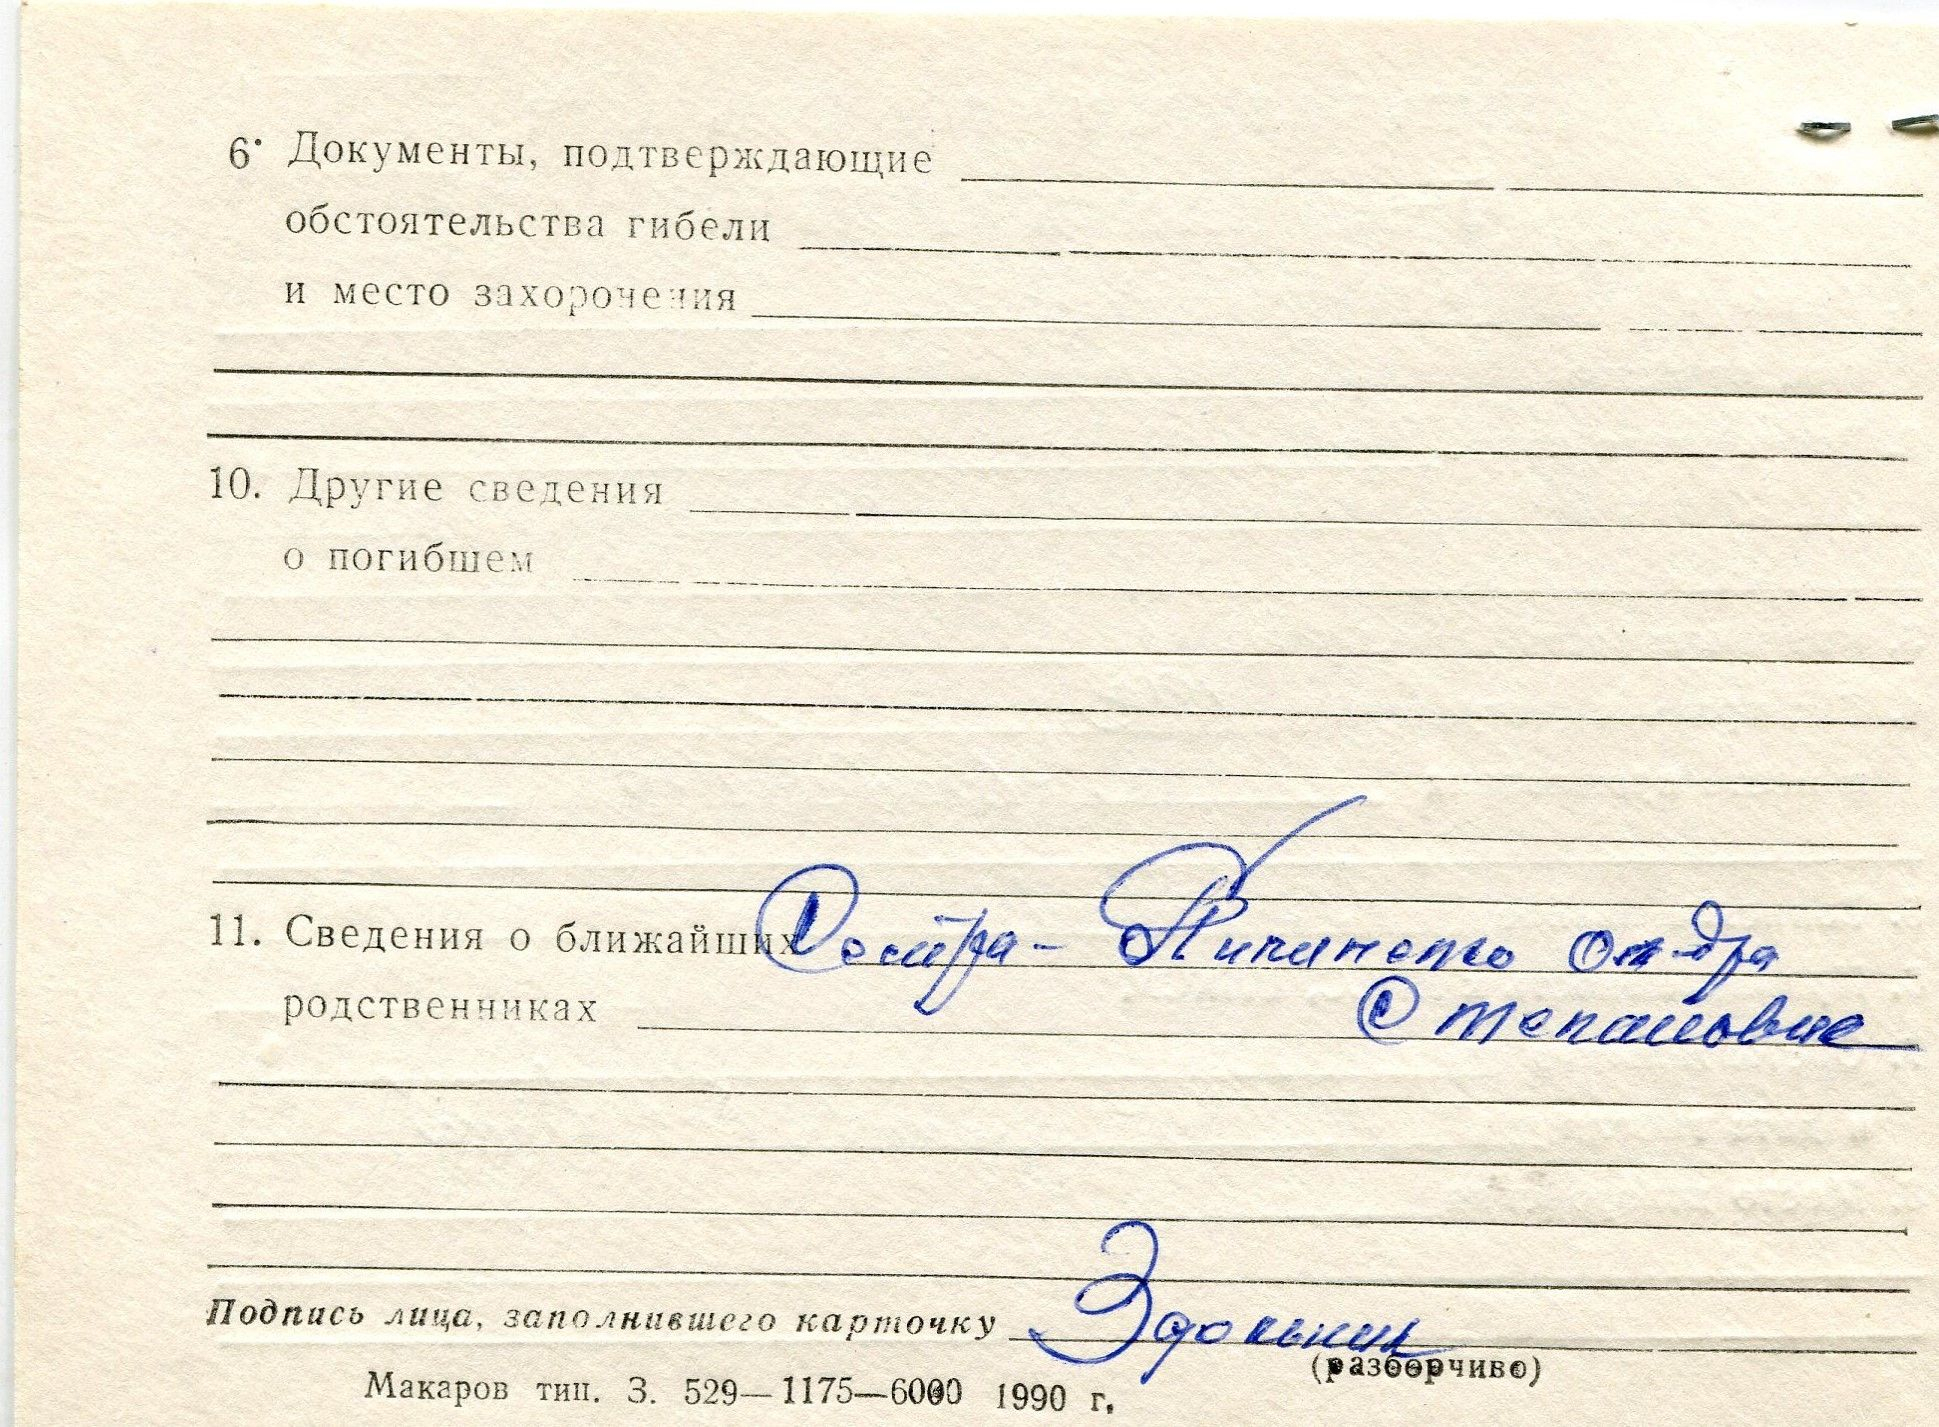 6. Документы, подтверждающие
обстоятельства гибели
и место захорочения
10. Другие сведения
о погибшем
11. Сведения о ближайших Сестра-
Степановне
родственниках
Подпись лица, заполнившего карточку
(разборчиво)
Макаров тип. З. 529—1175—6000 1990 г.